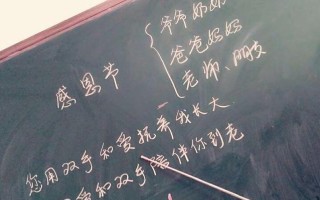 爷爷奶奶
感恩节
爸爸妈妈
老师、朋友
您用双手和爱抚养我长大
爱和双手陪伴你到老